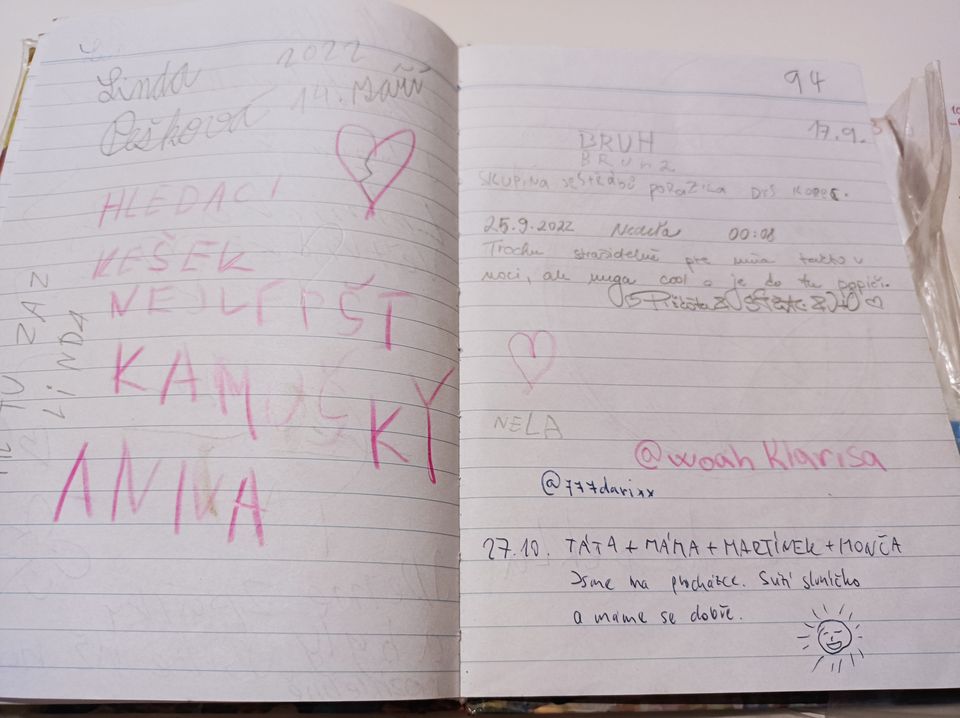 Linda 2022
Pešková 14. září
HLEDAČI
KEŠEK
NEJLEPŠT
KAMOŠ
KY
ANIČA
TU ZAZ
LiNDA
94
17.9.
BRUH
BRUH 2
SKUPINA JEŠTĚRŮ PORAZILA
25.9.2022 Neděle 00:08
Trochu strašidelně pro takto v
noci, ale muga cool a je to tu
NELA
@woah Klarisa
@777darixx
27.10. TÁTA + MÁMA + MARTÍNEK + MONČA
Jsme na procházce. Svítí sluníčko
a máme se dobře.